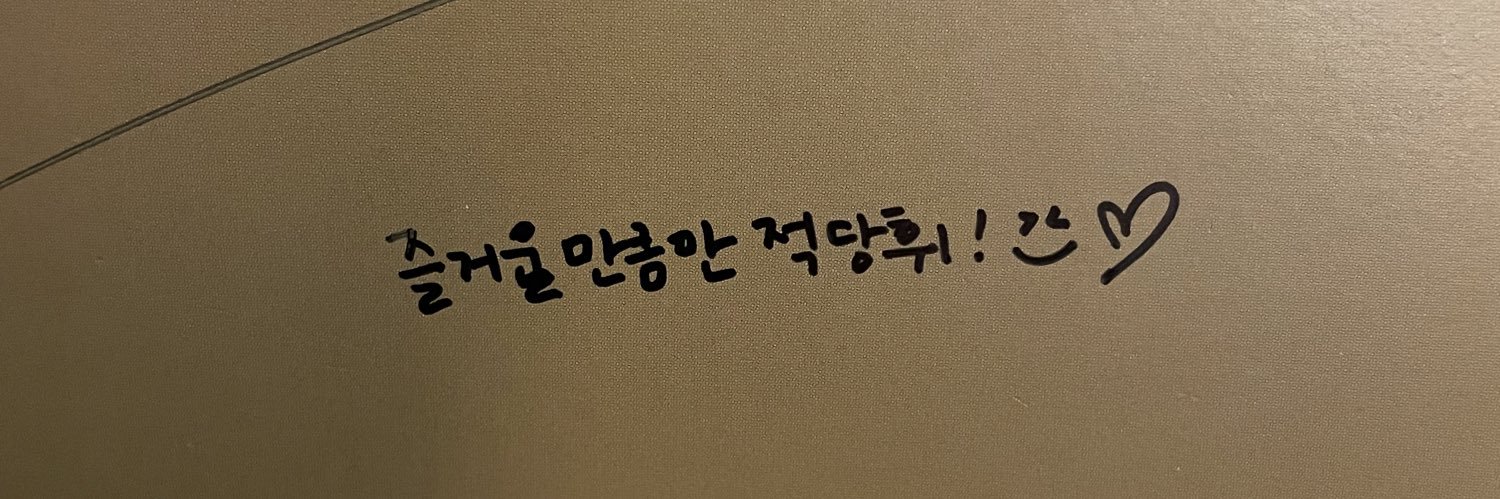 즐거울 만큼만 적당휘! ♡